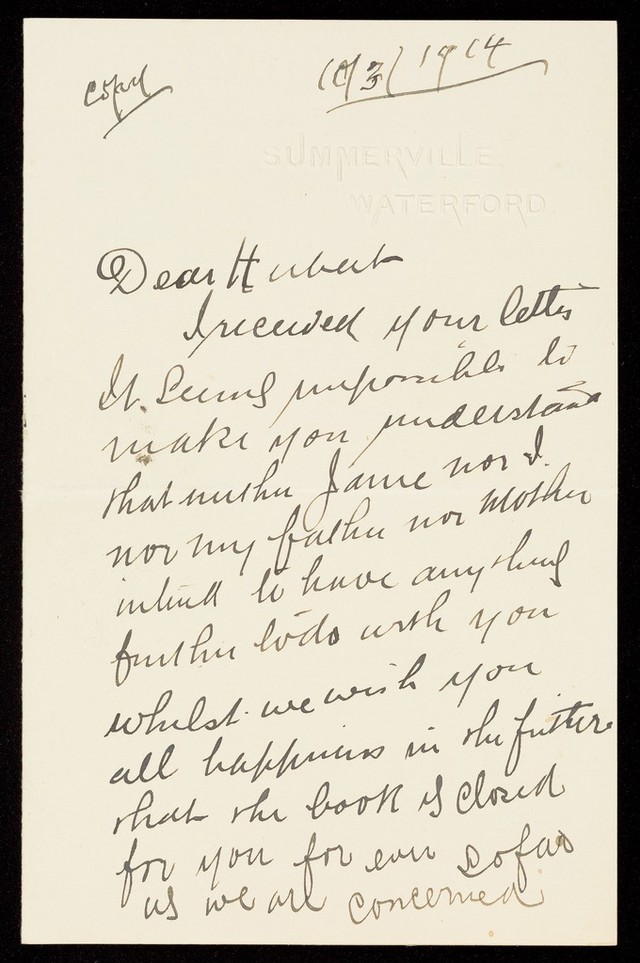 Copy
10/3/1914
SUMMERVILLE
WATERFORD
Dear Hubert
I received your letter
It seems impossible to
make you understand
that neither Jane nor I
nor my father nor Mother
intend to have anything
further to do with you
whilst we wish you
all happiness in the future
that the book is closed
for you for ever so far
as we are concerned